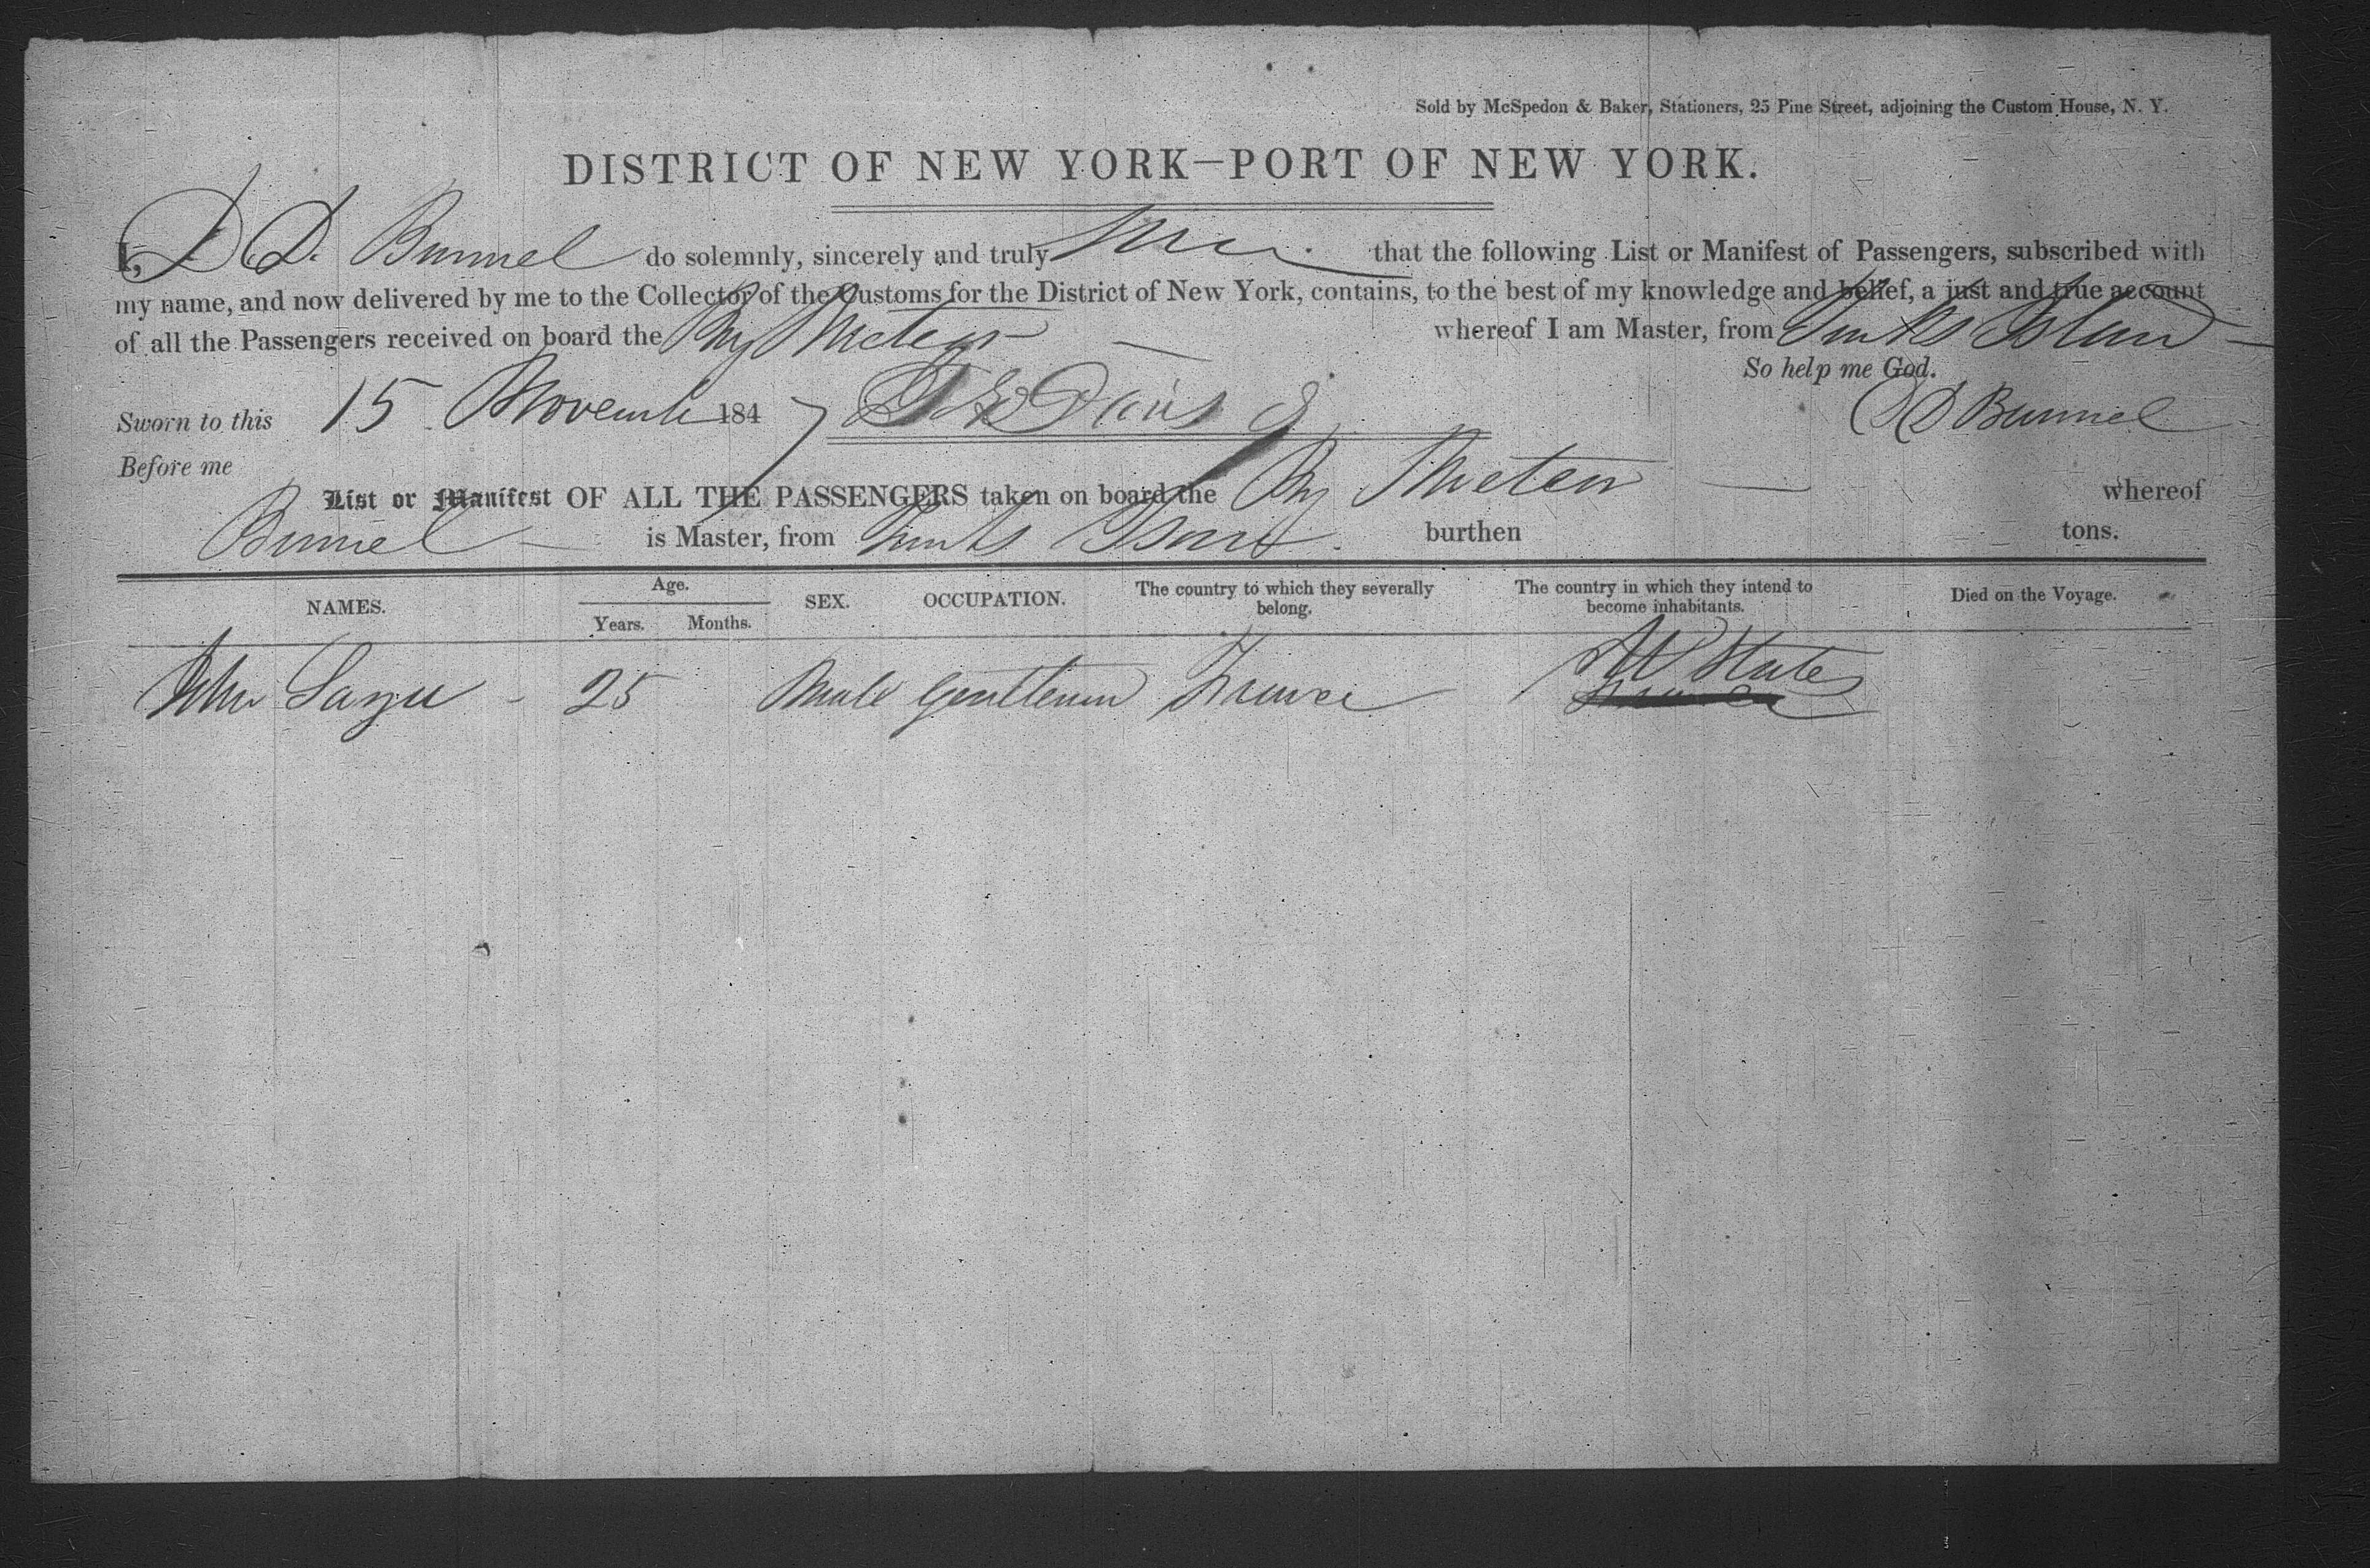 Sold by McSpedon & Baker, Stationers, 25 Pine Street, adjoining the Custom House, N. Y.
DISTRICT OF NEW YORK—PORT OF NEW YORK.
I, D. D. Bunnel do solemnly, sincerely and truly that the following List or Manifest of Passengers, subscribed with
my name, and now delivered by me to the Collector of the Customs for the District of New York, contains, to the best of my knowledge and belief, a just and true account
of all the Passengers received on board the whereof I am Master, from Turks Island
So help me God.
Sworn to this 15 Novembe 1847 Davis D Bunnel
Before me
List or Manifest OF ALL THE PASSENGERS taken on board the whereof
Bunnel is Master, from Turks burthen tons.
NAMES. Age. Years. Months. SEX. OCCUPATION. The country to which they severally belong. The country in which they intend to become inhabitants. Died on the Voyage.
John 25 Male Gentleman France U States